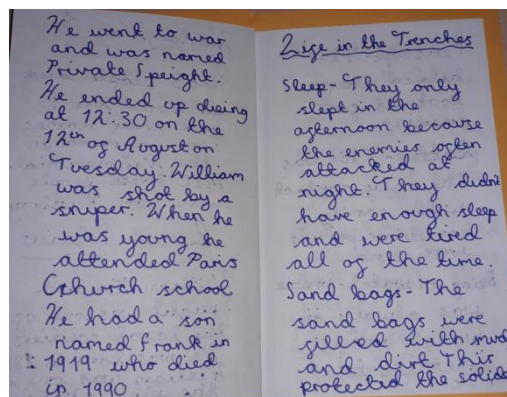 He went to war
and was named
Private Speight.
He ended up dieing
at 12:30 on the
12th of August on
Tuesday. William
was shot by a
sniper. When he
was young he
attended Paris
Church school
He had a son
named frank in
1919 who died
in 1990
Life in the Trenches
Sleep- They only
slept in the
afternoon because
the enemies often
attacked at
night. They didn't
have enough sleep
and were tired
all of the time.
Sand bags- The
sand bags were
filled with mud
and dirt This
protected the solide